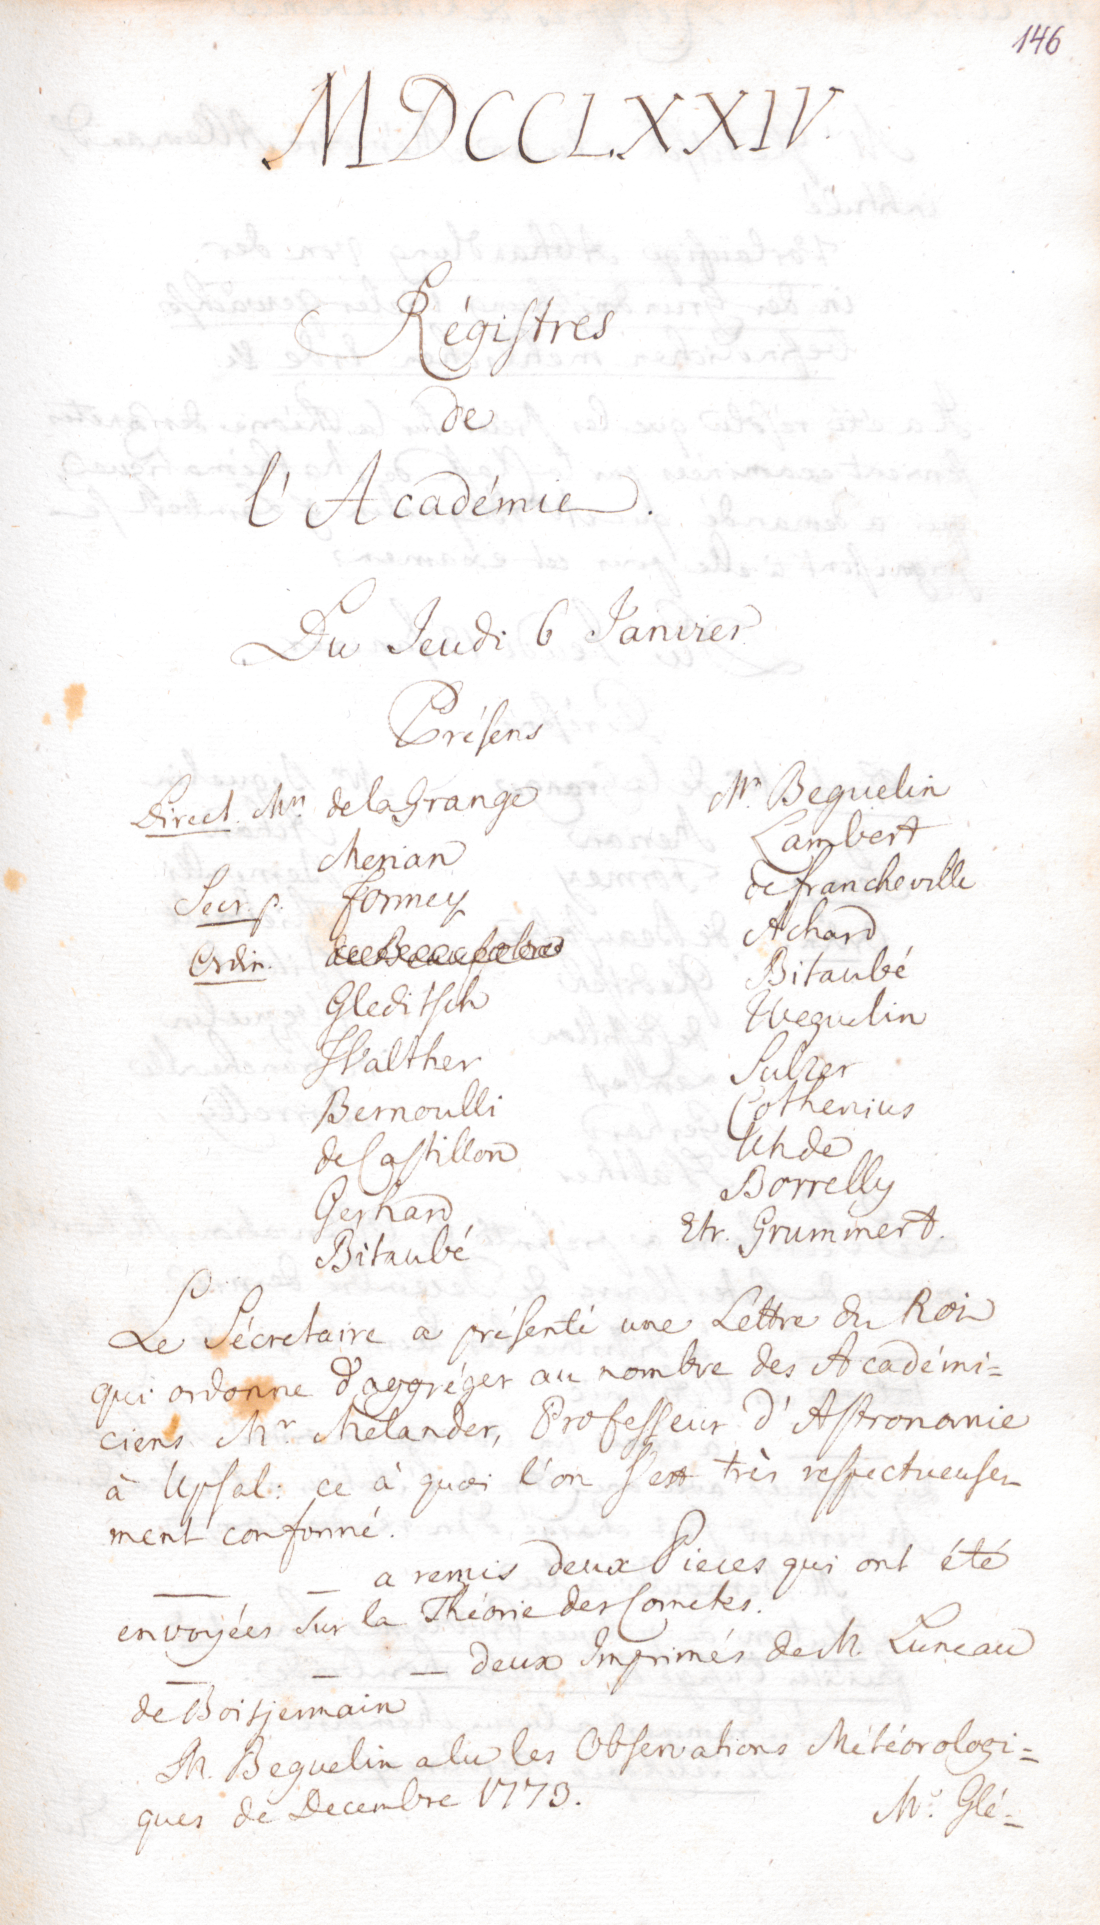 146
MDCCLXXIV.
Régistres
de
l'Académie.
Du Jeudi 6 Janvier
Présens
Direct. Mrs de la Grange
Merian
Secr. p. Formey
Ordin.
Gleditsch
Walther
Bernoulli
de Castillon
Gerhard
Bitaubé
Mrs Beguelin
Lambert
de Francheville
Achard
Bitaubé
Weguelin
Sulzer
Cothenius
Uhde
Borrelly
Etr. Grummert.
Le Sécretaire a présenté une Lettre du Roi
qui ordonne d'aggréger au nombre des Académi=
ciens Mr Melander, Professeur d'Astronomie
à Upsal: ce à quoi l'on s'est très respectueuse=
ment conformé.
— — a remis deux Pieces qui ont été
envoyées sur la Théorie des Cometes.
— — — deux Imprimés de M. Luneau
de Boisjermain
M. Beguelin a lu les Observations Météorologi=
ques de Decembre 1773.
Mr. Glé=